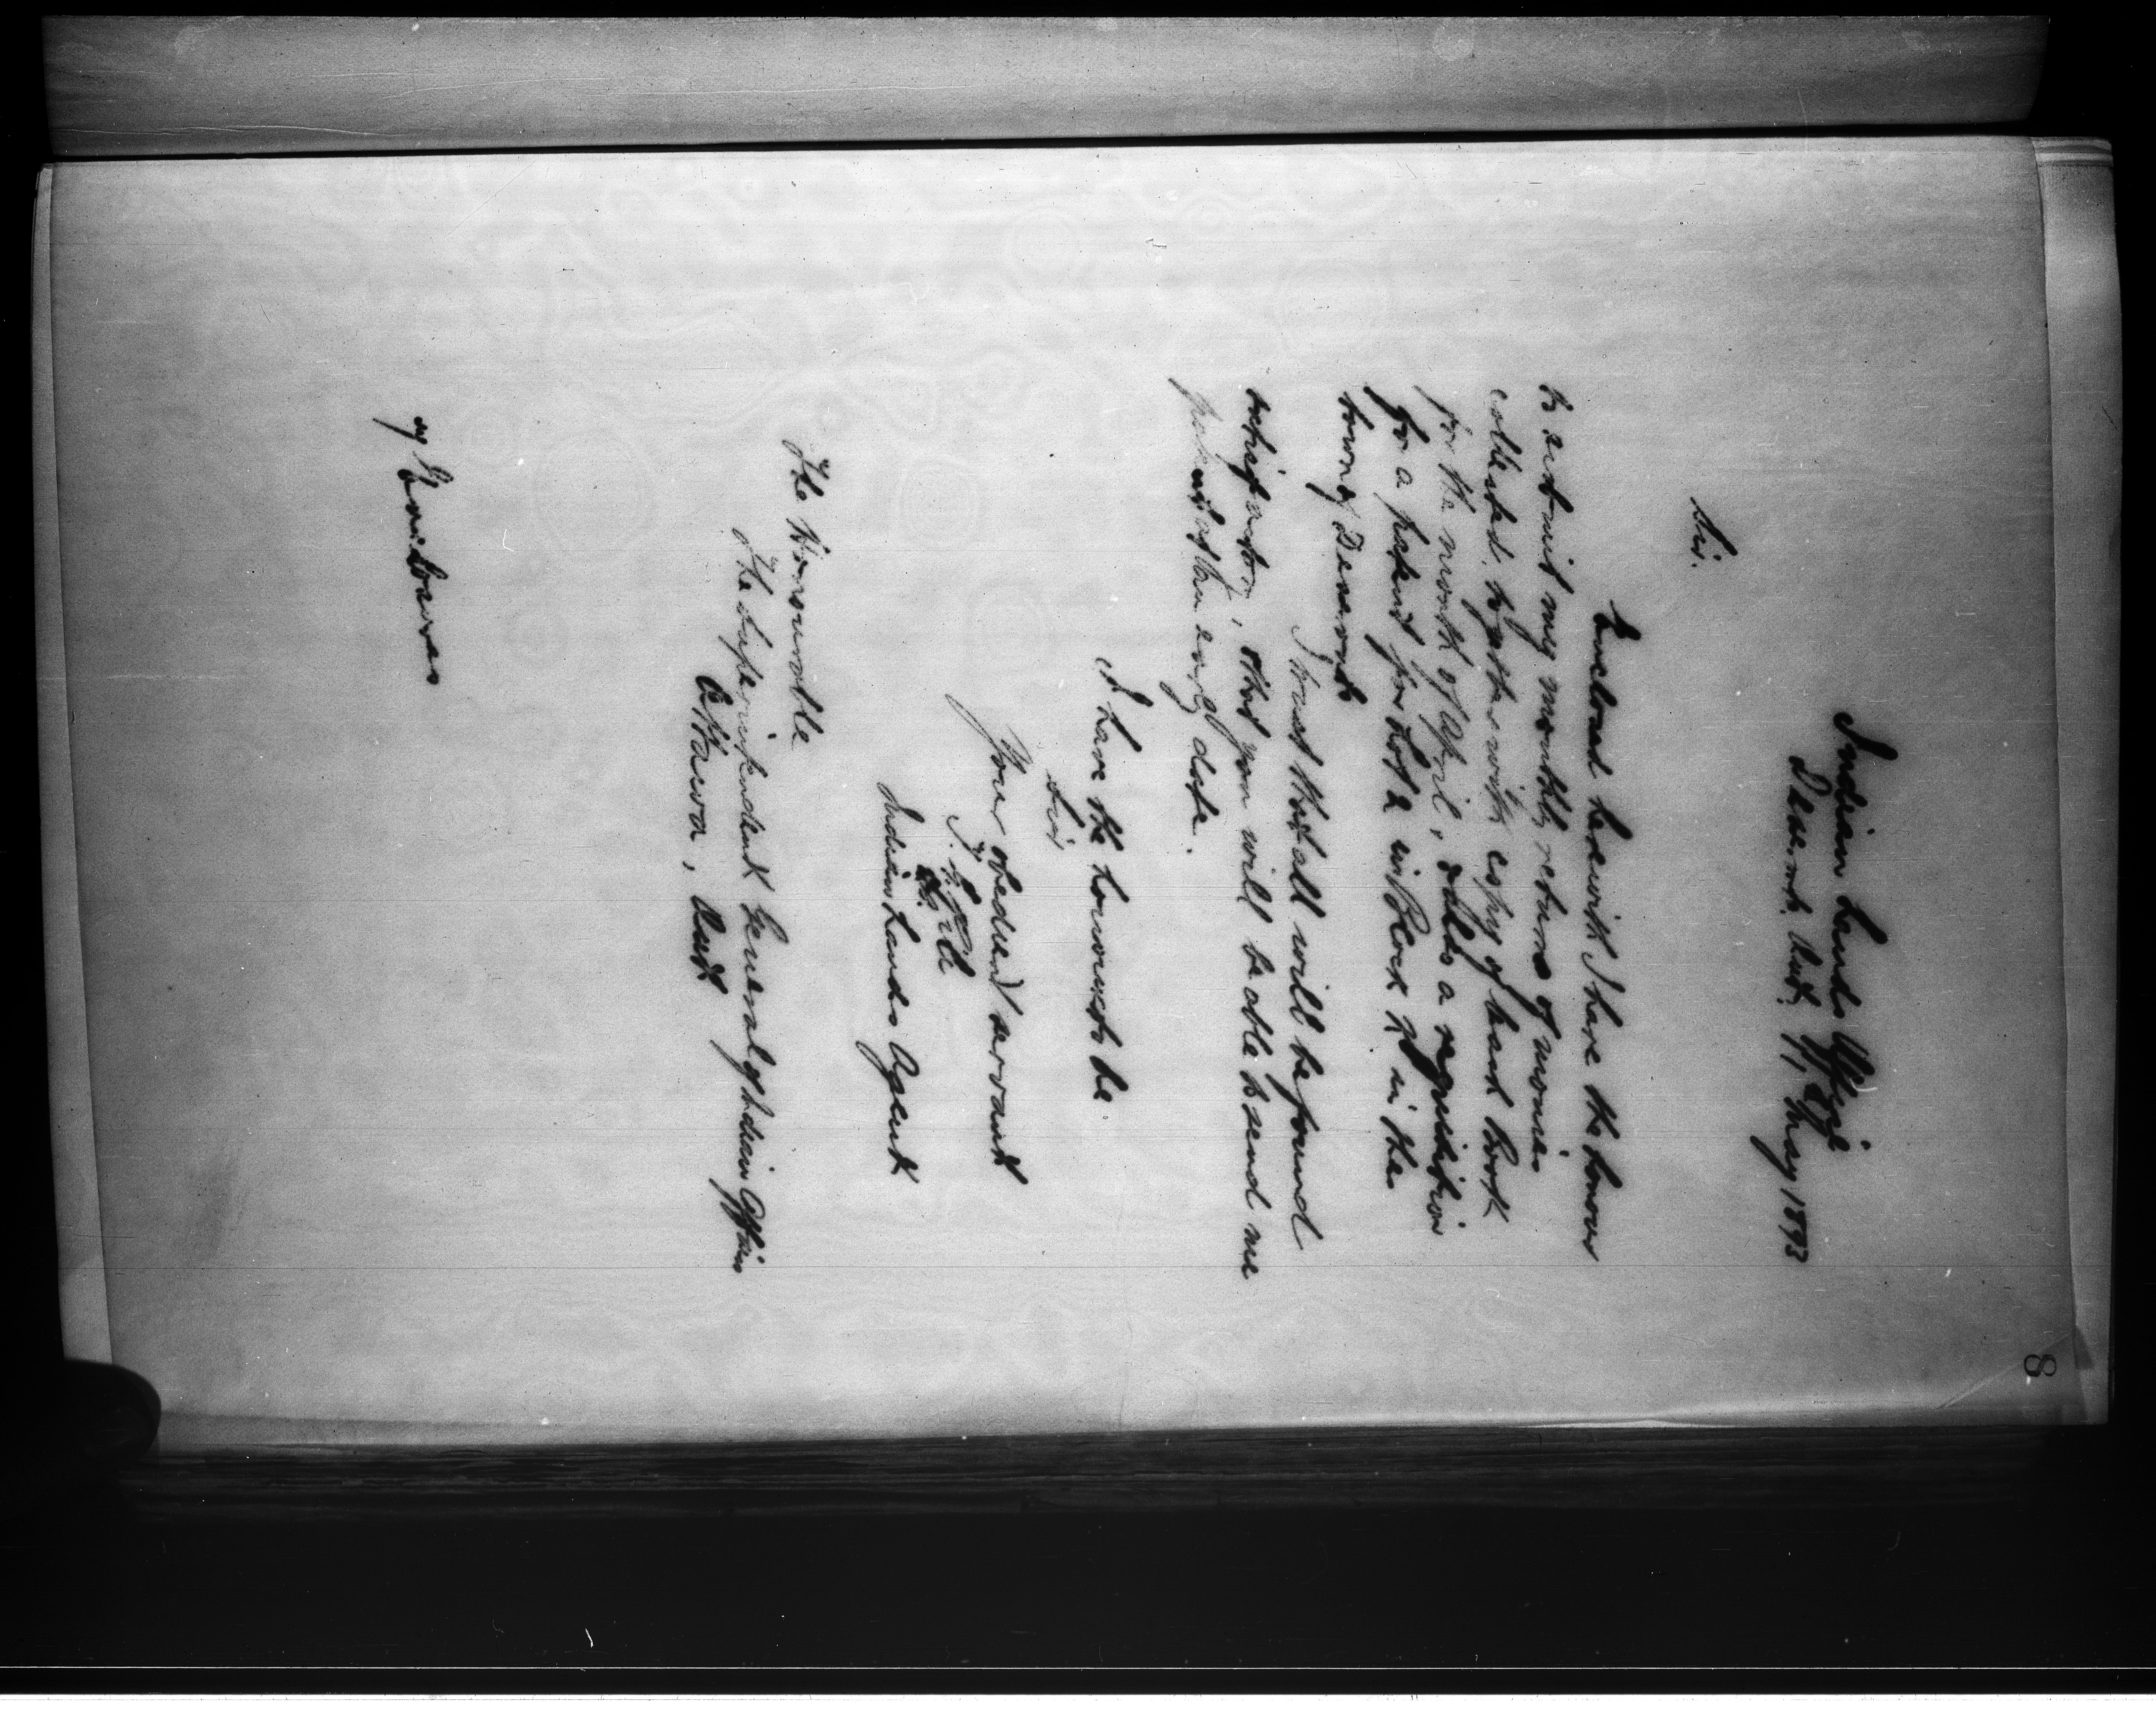 8
Indian Lands Office
Deseronto Ont. 9, May 1893
Sir.
Enclosed herewith I have the honour
to submit my monthly returns of monies
collected, together with copy of Cash Book
for the month of April, also a requisition
for a patent for Lot 2 in Block in the
town of Deseronto
I trust that all will be found
satisfactory, and you will be able to send me
patent at an early date.
I have the honour to be
Sir
Your obedient servant
Indian Lands Agent
The Honourable
The Superintendent General of Indian Affairs
Ottawa, Ont